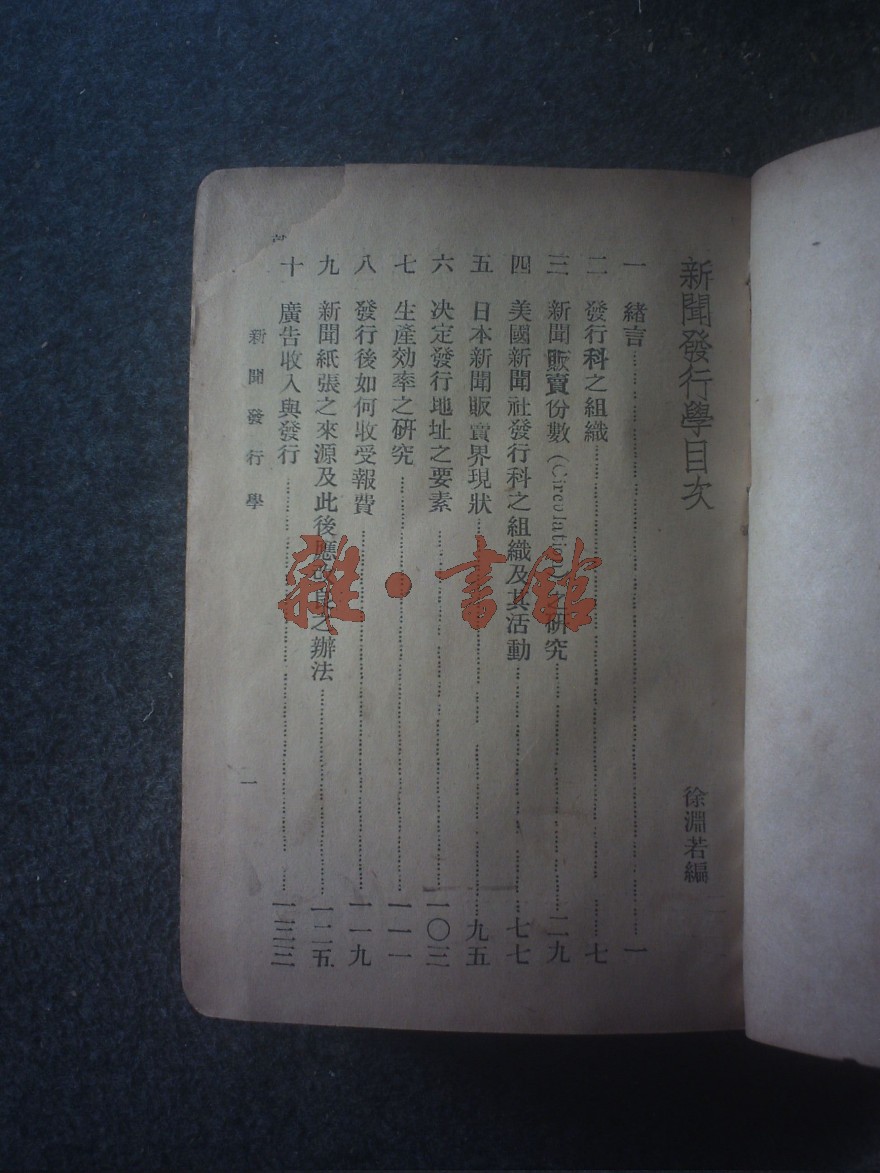 新聞發行學目次
徐淵若編
一 緒言……一
二 發行科之組織……七
三 新聞販賣份數(Circulation)之研究……二九
四 美國新聞社發行科之組織及其活動……七七
五 日本新聞販賣界現狀……九五
六 决定發行地址之要素……一〇三
七 生產効率之研究……一一一
八 發行後如何收受報費……一一九
九 新聞紙張之來源及此後應改良之辦法……一二五
十 廣告收入與發行……一三三
新聞發行學
一
雜·書館